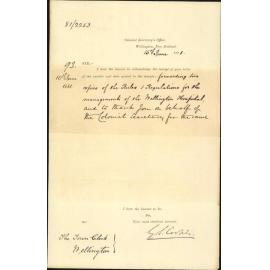 81/2253
Colonial Secretary's Office,
Wellington, New Zealand,
16th June 1881.
93
10th June
1881
SIR,—
I have the honour to acknowledge the receipt of your letter
of the number and date quoted in the margin, forwarding two
copies of the Rules & Regulations for the
management of the Wellington Hospital,
and to thank you on behalf of
the Colonial Secretary for the same
I have the honour to be,
Sir,
Your most obedient servant,
The Town Clerk
Wellington